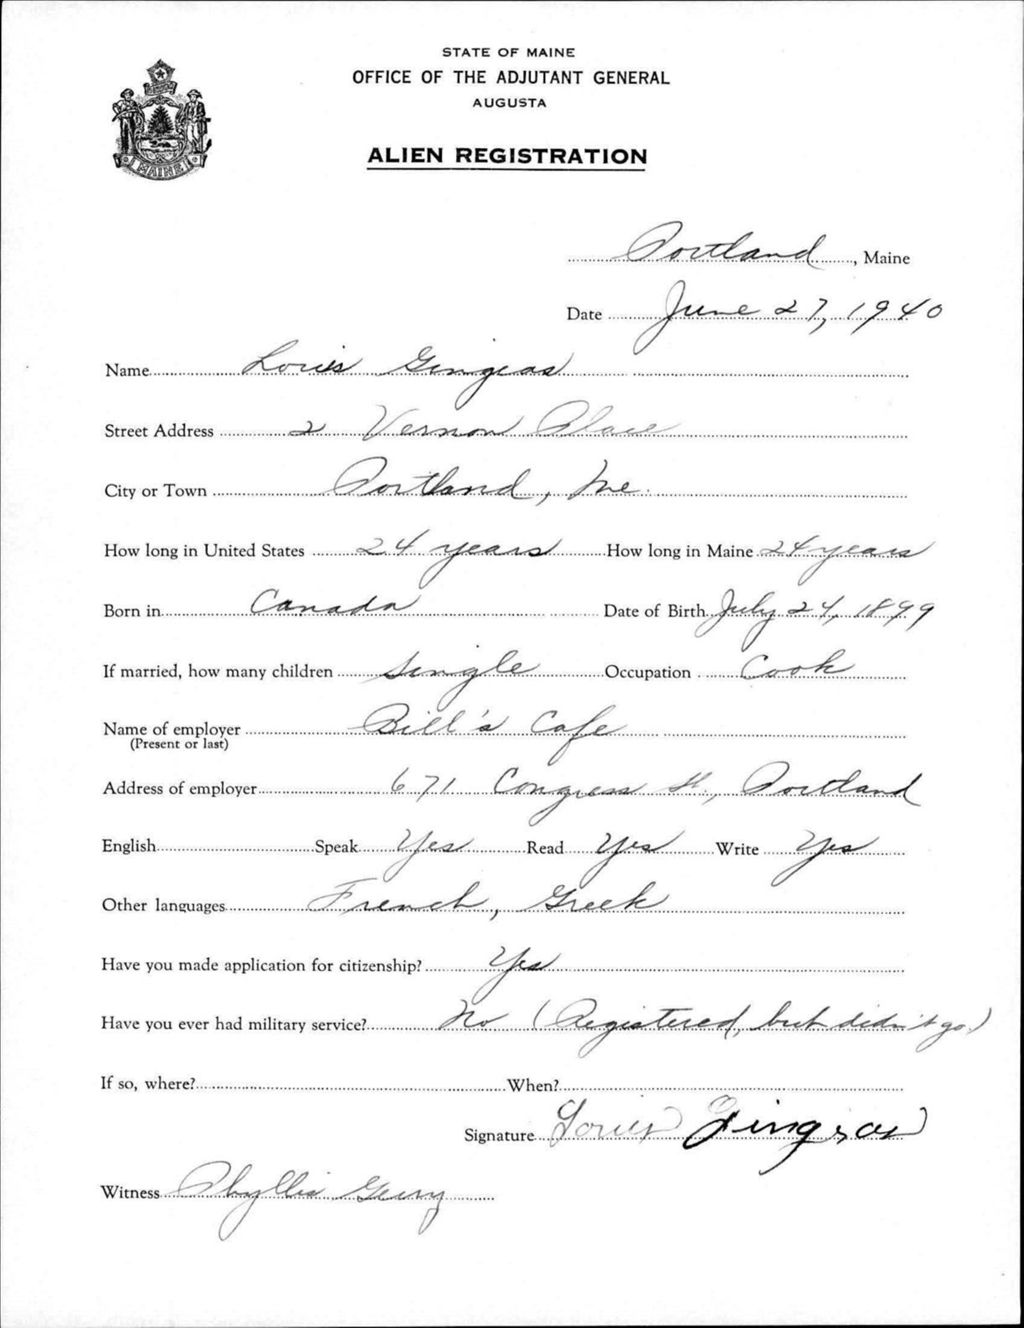 STATE OF MAINE
OFFICE OF THE ADJUTANT GENERAL
AUGUSTA
ALIEN REGISTRATION
MAINE
Portland, Maine
Date June 27, 1940
Name Louis Gingeas
Street Address 2 Vernon Place
City or Town Portland, Me.
How long in United States 24 years How long in Maine 24 years
Born in Canada Date of Birth July 24, 1899
If married, how many children Single Occupation Cook
Name of employer Bill's Cafe
(Present or last)
Address of employer 671 Congress St., Portland
English Speak Yes Read Yes Write Yes
Other languages French, Greek
Have you made application for citizenship? Yes
Have you ever had military service? No (Registered, but didn't go.)
If so, where? When?
Signature Louis Gingeas
Witness Phyllis Geary